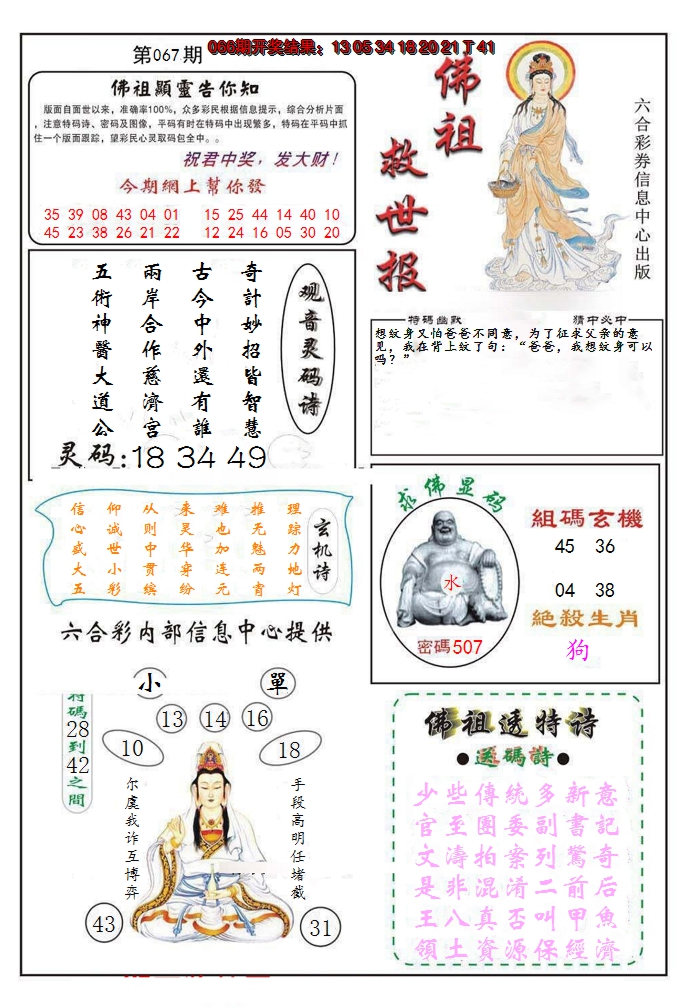 第067期
066期开奖结果：13 05 34 18 20 21 T 41
佛祖顯靈告你知
版面自面世以来，准确率100%，众多彩民根据信息提示，综合分析片面
，注意特码诗、密码及图像，平码有时在特码中出现繁多，特码在平码中抓
住一个版面跟踪，望彩民心灵取码包全中。。
祝君中奖，发大财！
今期網上幫你發
35 39 08 43 04 01 15 25 44 14 40 10
45 23 38 26 21 22 12 24 16 05 30 20
佛祖
救世报
六合彩券信息中心出版
观音灵码诗
奇計妙招皆智慧
古今中外還有誰
兩岸合作慈濟宮
五術神醫大道公
灵码:18 34 49
特碼幽默
猜中必中
想纹身又怕爸爸不同意，为了征求父亲的意
见，我在背上纹了句：“爸爸，我想纹身可以
吗？”
玄机诗
理踪力地灯
推无魅两青
难也加连元
来灵华穿纷
从则中贯缤
仰诚世小彩
信心盛大五
六合彩内部信息中心提供
求佛显码
水
密碼507
組碼玄機
45 36
04 38
絕殺生肖
狗
小
單
特碼28到42之間
13
14
16
10
18
手段高明任堵截
尔虞我诈互博弈
43
31
佛祖透特诗
●送碼詩●
少些傳統多新意
官至團委副書記
文濤拍案列驚奇
是非混淆二前后
王八真否叫甲魚
領土資源保經濟